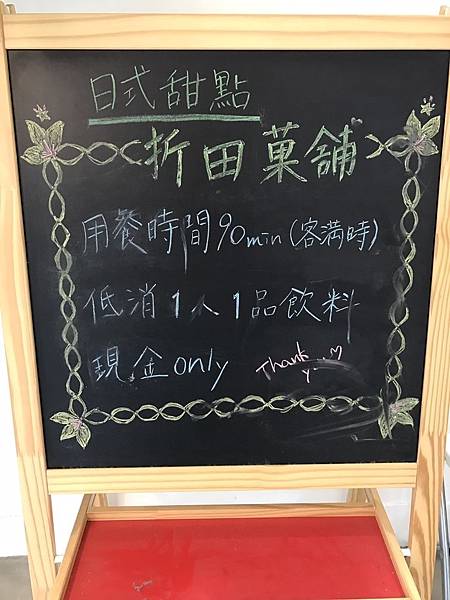 日式甜點
折田菓舖
用餐時間90min(客滿時)
低消1人1品飲料
現金only
Thank
y...